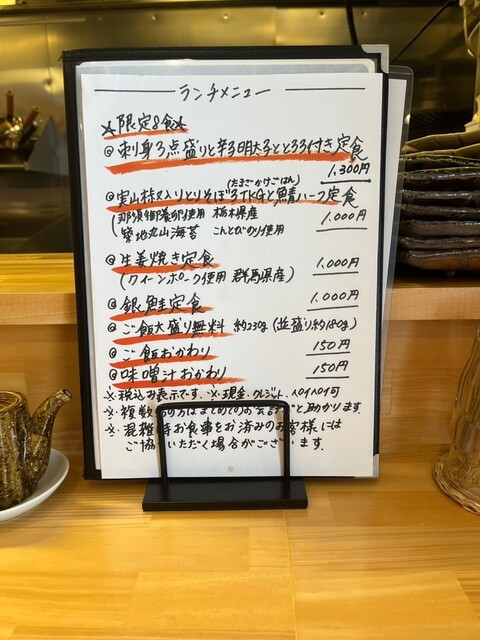 ランチメニュー
★限定8食★
◎刺身3点盛りと辛子明太子ととろろ付き定食
1,300円
(たまごかけごはん)
◎実山椒入りとりそぼろTKGと鯖ハーフ定食
(那須御養卵使用 栃木県産 1,000円
築地丸山海苔 こんとびのり使用
◎生姜焼き定食 1,000円
(クイーンポーク使用 群馬県産)
◎銀鮭定食 1,000円
◎ご飯大盛り無料 約230g (並盛り約180g)
◎ご飯おかわり 150円
◎味噌汁おかわり 150円
※税込み表示です。※現金、クレジット、ペイペイ可
※複数の方はまとめてのお会計だと助かります
※混雑時お食事をお済みのお客様には
ご協いただく場合がございます.